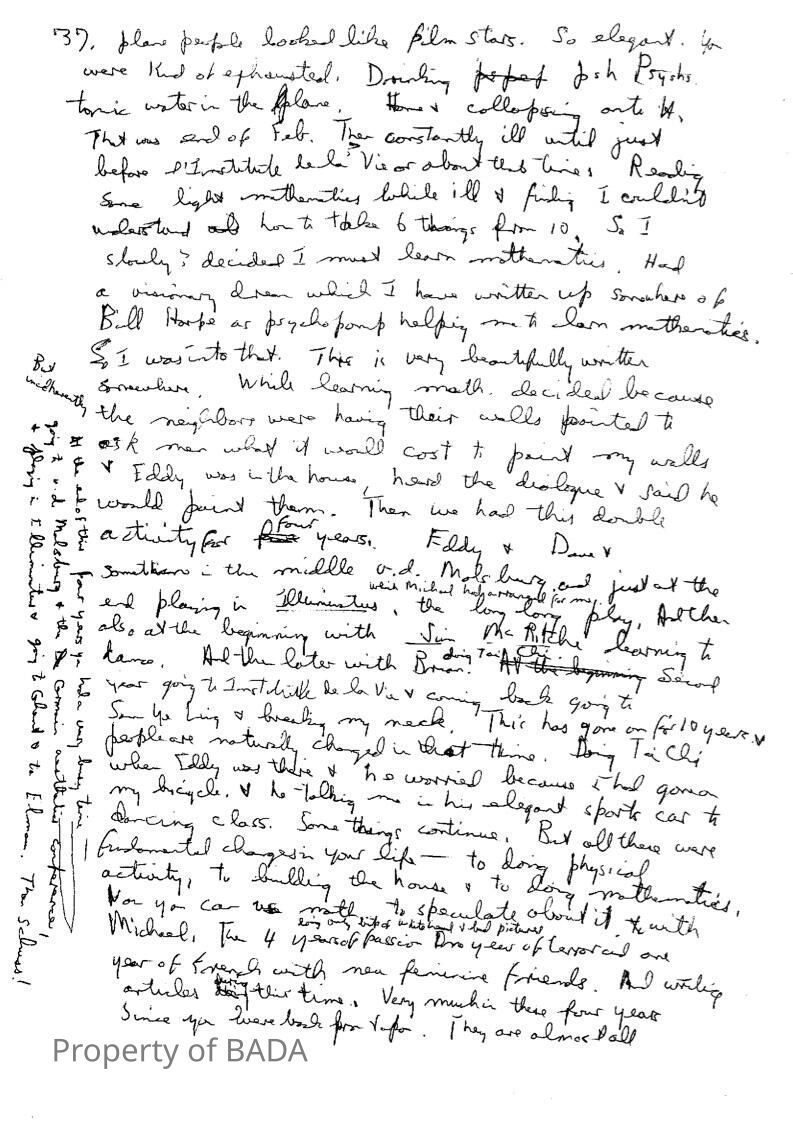 37. plane people looked like film stars. So elegant. You
were kind of exhausted. Drinking
tonic water in the plane. Home & collapsing onto it.
That was end of Feb. Then constantly ill until just
before l'Institute de la Vie or about that time. Reading
some light mathematics while ill & finding I couldn't
understand how to take 6 things from 10. So I
slowly? decided I must learn mathematics. Had
a visionary dream which I have written up somewhere of
Bill Harpe as psychopomp helping me to learn mathematics.
So I was into that. This is very beautifully written
somewhere. While learning math. decided because
the neighbors were having their walls painted to
ask men what it would cost to paint my walls
& Eddy was in the house, heard the dialogue & said he
would paint them. Then we had this double
activity for four years. Eddy & Dave &
somewhere in the middle v.d. Malsburg and just at the
which Michael had arranged for me,
end playing in Illuminatus, the long long play. And then
also at the beginning with Jim McRitchie learning to
dance. And then later with Brian. At the beginning Second
doing Tai Chi.
year going to Institute de la Vie & coming back going to
& breaking my neck. This has gone on for 10 years &
people are naturally changed in that time. Doing Tai Chi
when Eddy was there & he worried because I had gone on
my bicycle. & he taking me in his elegant sports car to
dancing class. Some things continue. But all these were
fundamental changes in your life — to doing physical
activity, to building the house & to doing mathematics.
Now you can use math to speculate about it & with
Michael. The 4 years of passion One year of terror and one
year of French with new feminine friends. And writing
articles during this time. Very much in these four years
Since you were back from. They are almost all
But
incoherently
At the end of this four years you had a very busy time —
going to v.d. Malsburg & the German aesthetics conference,
& playing in Illuminatus & going to Ghent & to. The Schuss!
Property of BADA